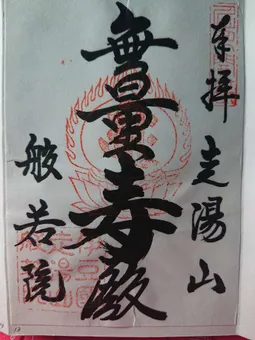 奉拝 走湯山
無量寿殿
般若院